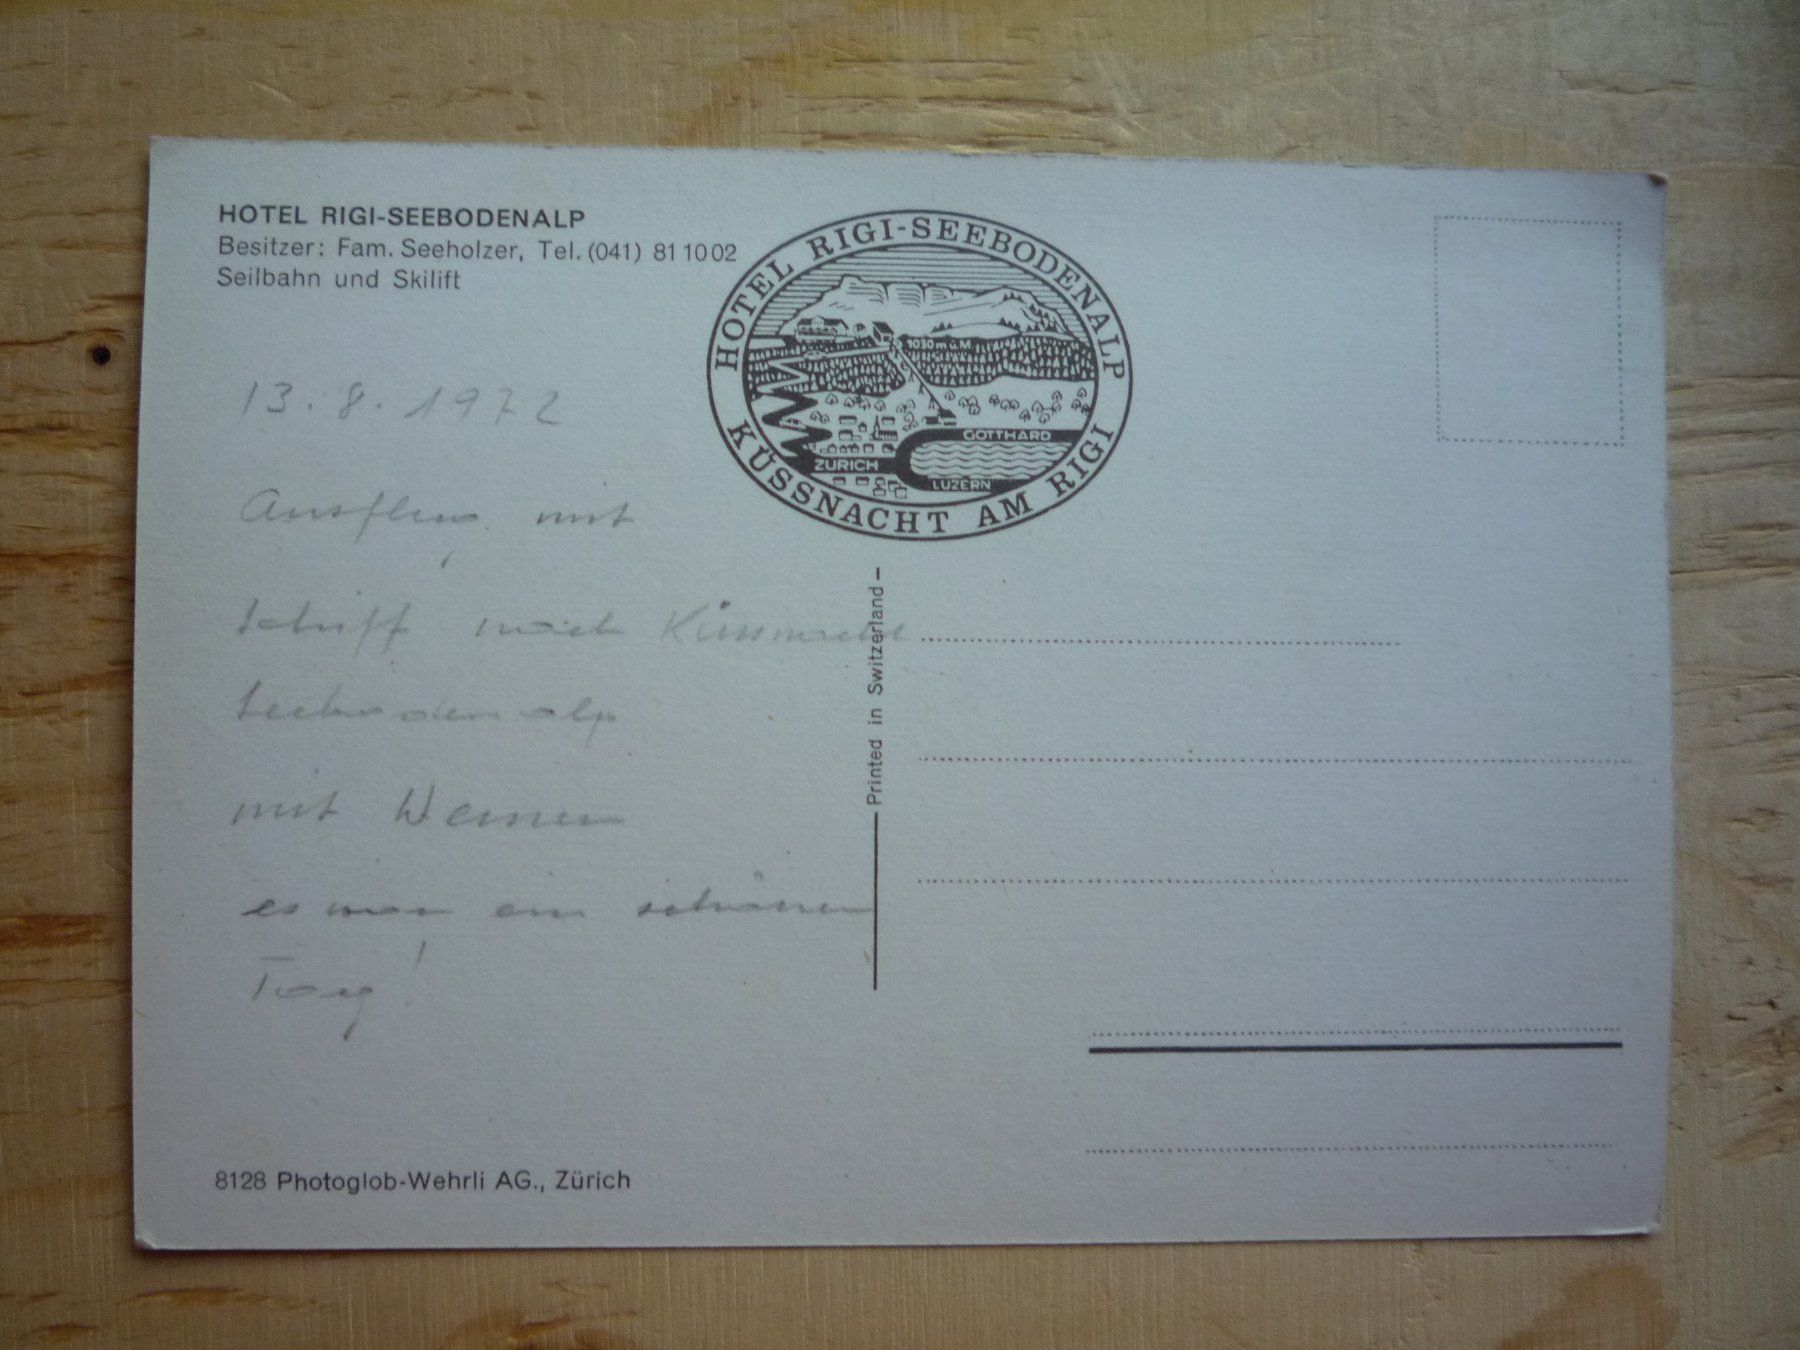 HOTEL RIGI-SEEBODENALP
Besitzer: Fam. Seeholzer, Tel. (041) 81 10 02
Seilbahn und Skilift
HOTEL RIGI-SEEBODENALP
KÜSSNACHT AM RIGI
1030 m ü. M.
GOTTHARD
ZÜRICH
LUZERN
13. 8. 1972
Ausflug mit
Schiff nach Küssnacht
Seebodenalp
mit Werner
es war ein schöner
Tag!
Printed in Switzerland
8128 Photoglob-Wehrli AG., Zürich